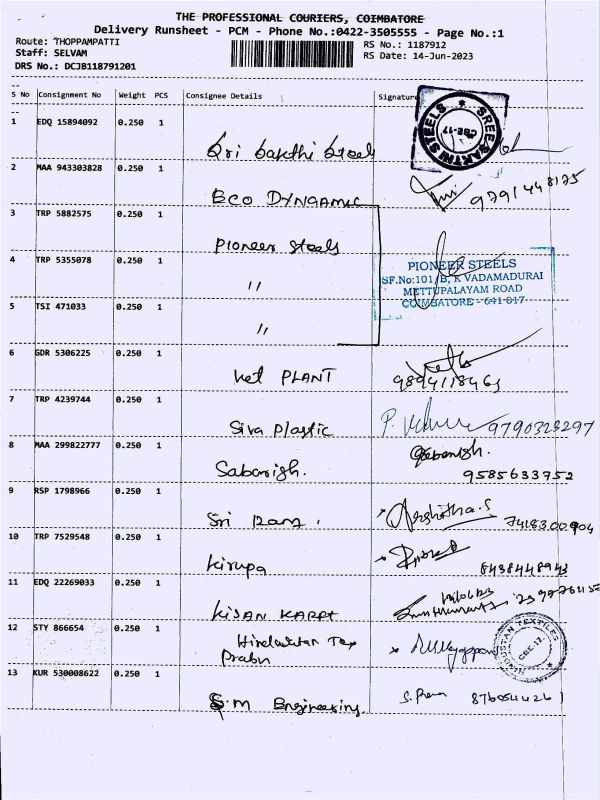 THE PROFESSIONAL COURIERS, COIMBATORE
Delivery Runsheet - PCM - Phone No.:0422-3505555 - Page No.:1
Route: THOPPAMPATTI
Staff: SELVAM
DRS No.: DCJB118791201
RS No.: 1187912
RS Date: 14-Jun-2023
S No Consignment No Weight PCS Consignee Details Signature
1 EDQ 15894092 0.250 1
Sri Sakthi Steels
SREE SAKTHI STEELS
CBE-17
2 MAA 943303828 0.250 1
ECO DYNAAMIC
9791448175
3 TRP 5882575 0.250 1
Pioneer Steels
4 TRP 5355078 0.250 1
"
PIONEER STEELS
SF.No:101/B, K VADAMADURAI
METTUPALAYAM ROAD
COIMBATORE - 641 017
5 TSI 471033 0.250 1
"
6 GDR 5306225 0.250 1
Ket PLANT
9894118463
7 TRP 4239744 0.250 1
Siva Plastic
9790323297
8 MAA 299822777 0.250 1
Sabarish.
9585633752
9 RSP 1798966 0.250 1
Sri Ram .
7418300904
10 TRP 7529548 0.250 1
Kirupa
8438448943
11 EDQ 22269033 0.250 1
KISAN KARFT
12 STY 866654 0.250 1
Hindustan Tex
Prabu
HINDUSTAN TEXTILES
CBE-17.
13 KUR 530008622 0.250 1
S.M Engineering.